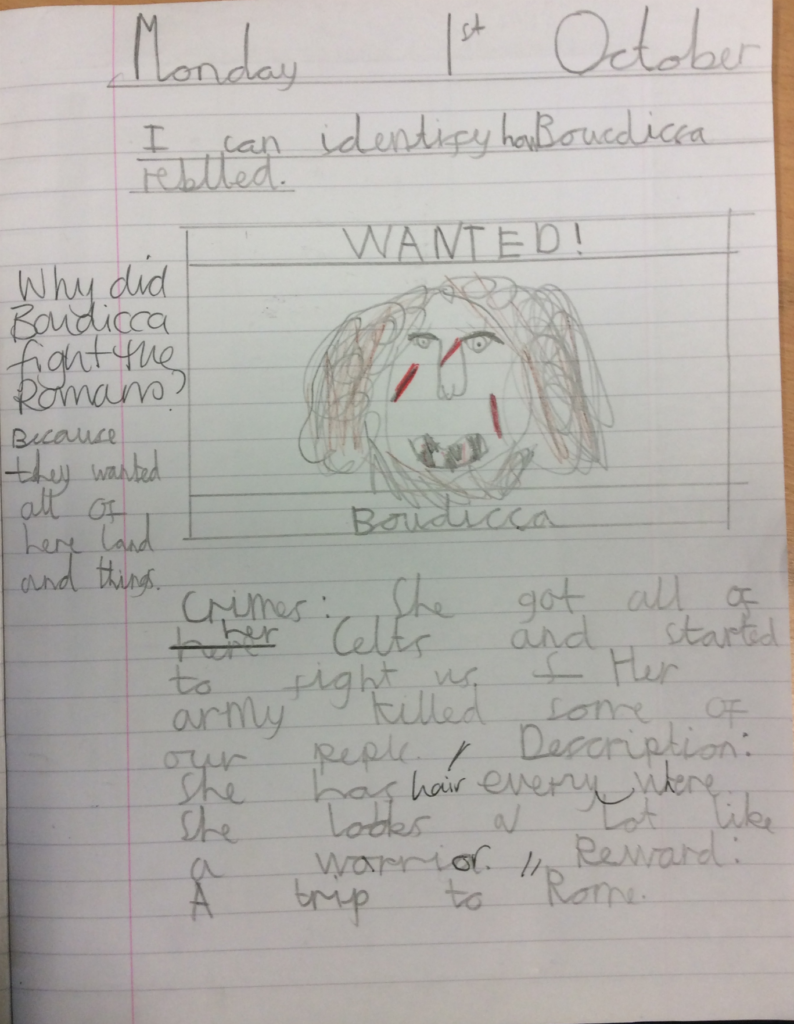 Monday 1st October
I can identify how Boucdicca
reblled.
WANTED!
Boudicca
Why did
Boudicca
fight the
Romans?
Because
they wanted
all of
here land
and things.
Crimes: She got all of
here her Celts and started
to fight us. f Her
army killed some of
our peple. / Description:
She has hair everry where.
She looks a lot like
a warrior. // Reward:
A trip to Rome.